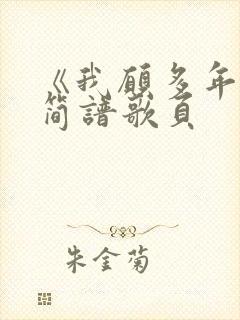 《我願多年
简譜歌页
朱金菊